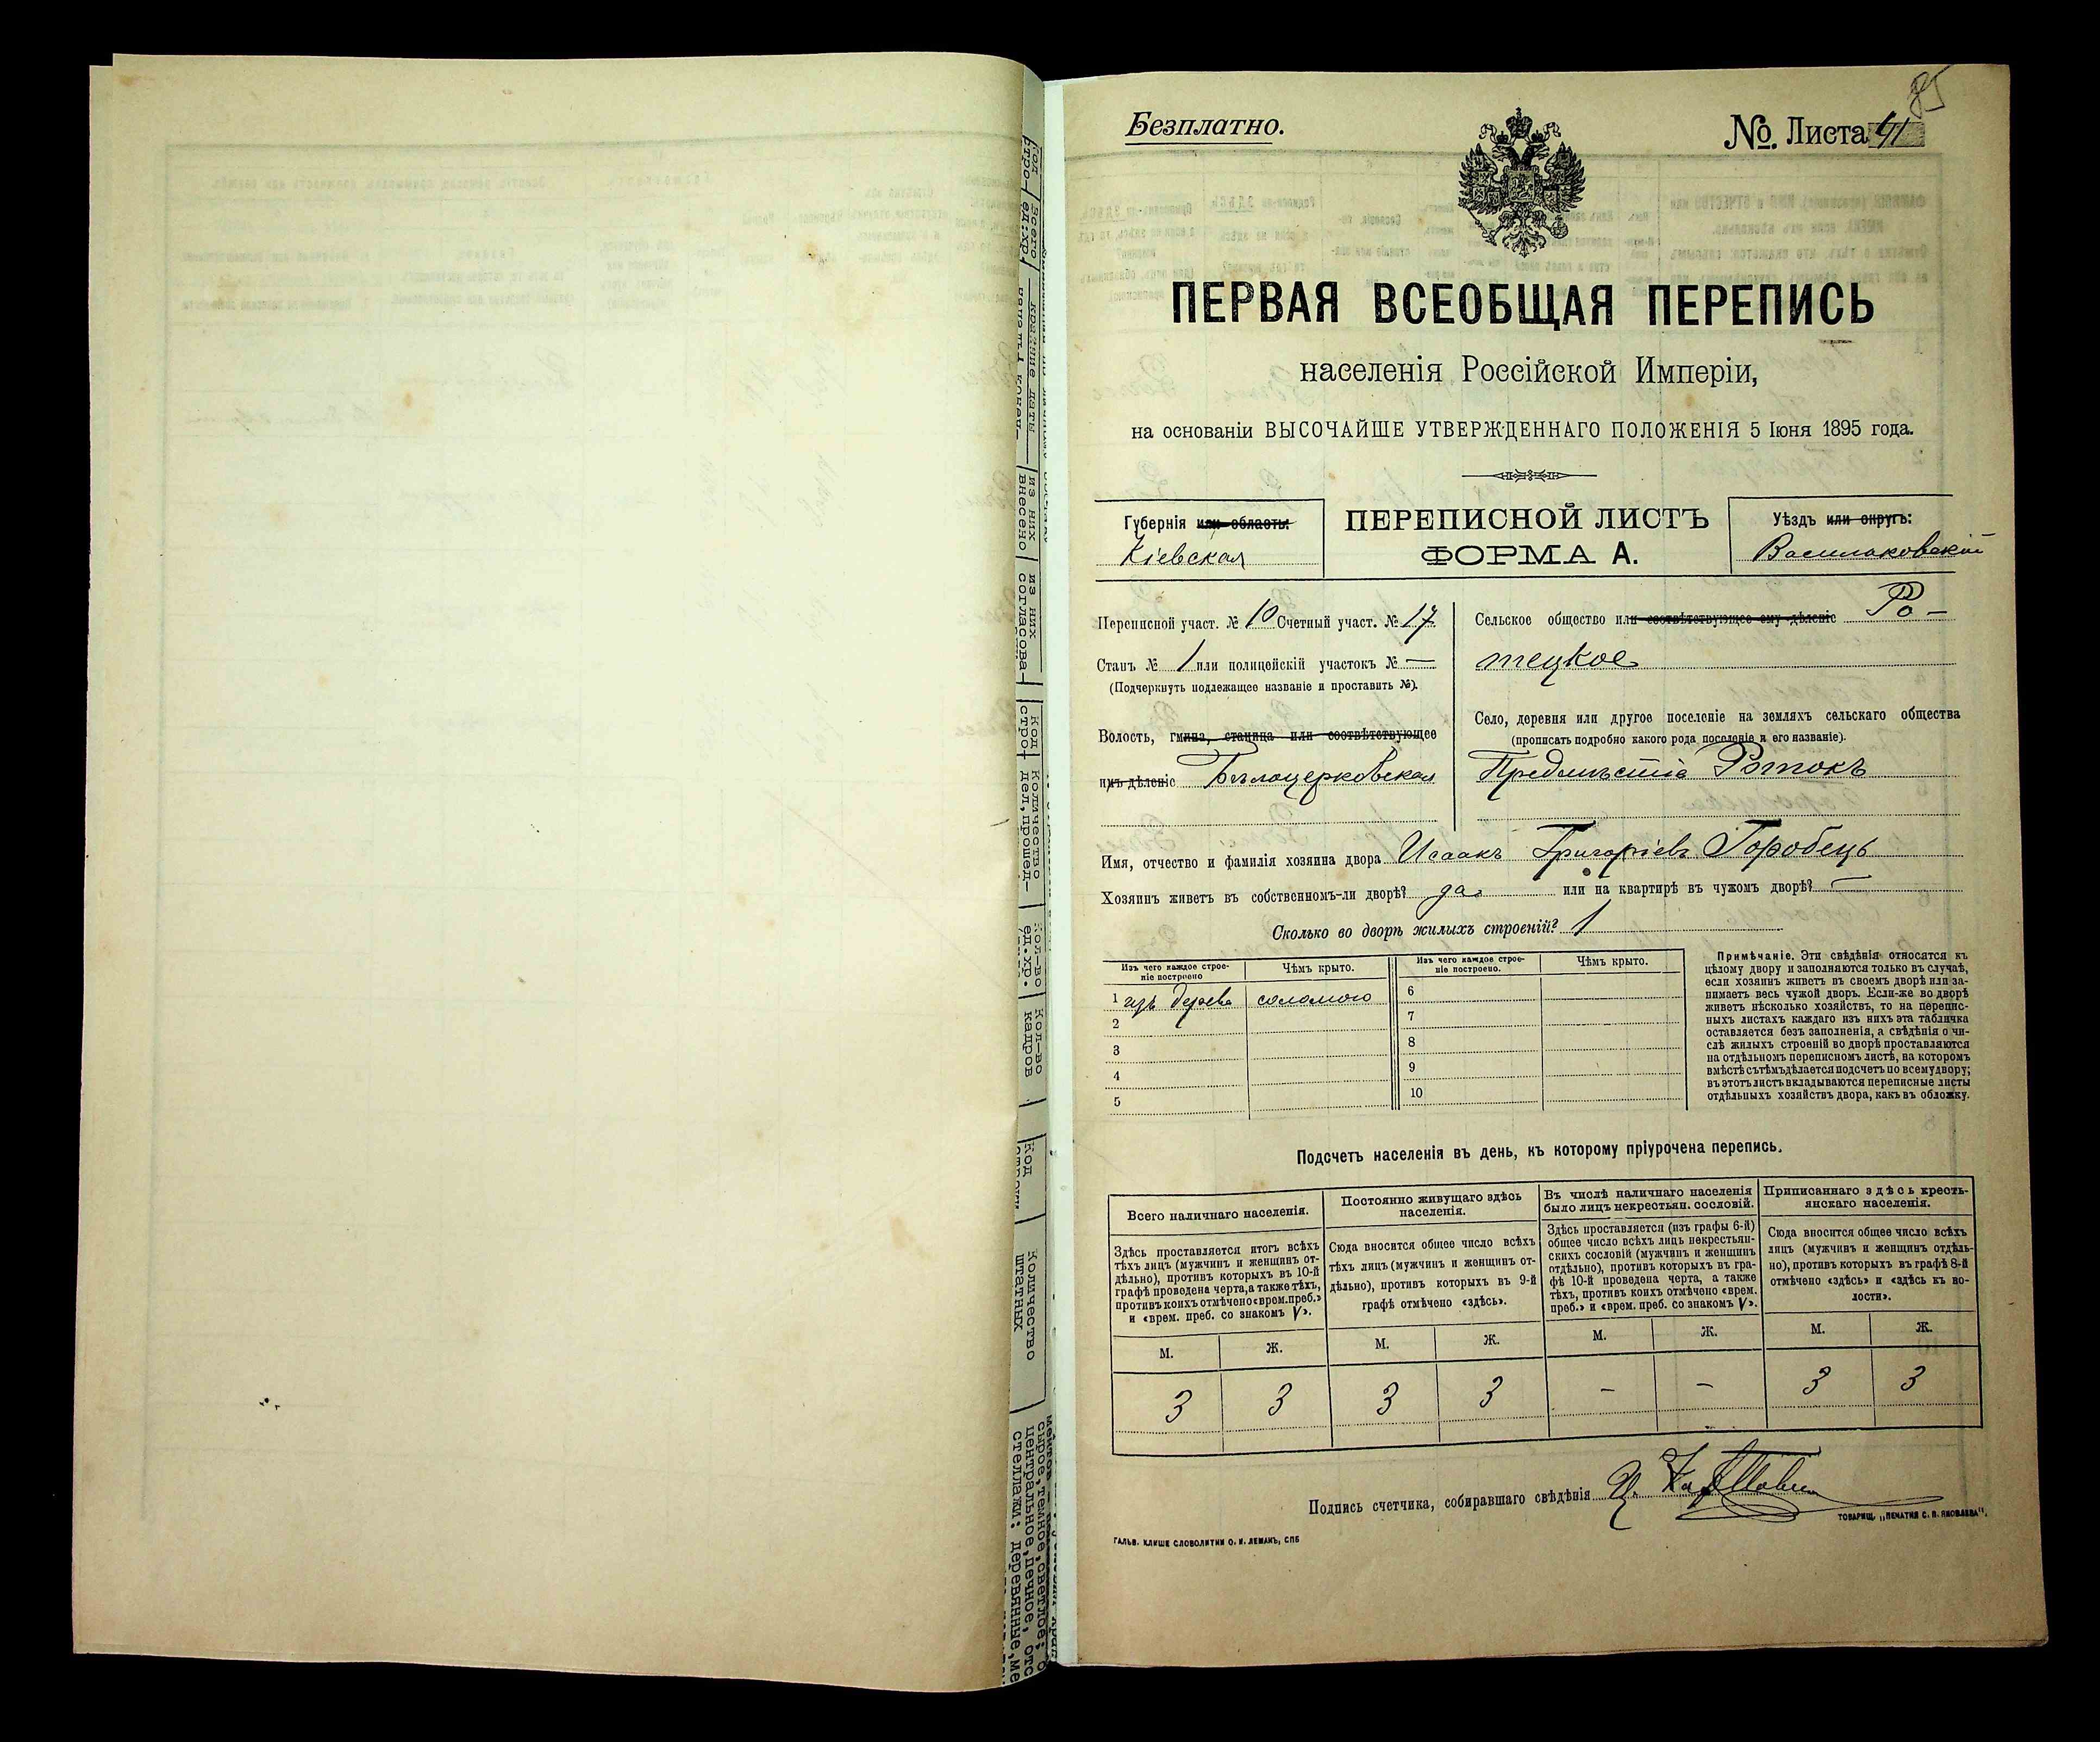 85
Безплатно.
№. Листа 41
ПЕРВАЯ ВСЕОБЩАЯ ПЕРЕПИСЬ
населенія Россійской Имперіи,
на основаніи ВЫСОЧАЙШЕ УТВЕРЖДЕННАГО ПОЛОЖЕНІЯ 5 Іюня 1895 года.
Губернія или область:
Кіевская
ПЕРЕПИСНОЙ ЛИСТЪ
ФОРМА А.
Уѣздъ или округъ:
Васильковскій
Переписной участ. № 10 Счетный участ. № 17
Станъ № 1 или полицейскій участокъ № —
(Подчеркнуть подлежащее названіе и проставить №).
Волость, гмина, станица или соотвѣтствующее
имъ дѣленіе Бѣлоцерковская
Сельское общество или соотвѣтствующее ему дѣленіе Ро-
тецкое
Село, деревня или другое поселеніе на земляхъ сельскаго общества
(прописать подробно какого рода поселеніе и его названіе).
Предмѣстіе Ротокъ
Имя, отчество и фамилія хозяина двора Исаакъ Григоріевъ Горобець
Хозяинъ живетъ въ собственномъ-ли дворѣ? да или на квартирѣ въ чужомъ дворѣ? —
Сколько во дворѣ жилыхъ строеній? 1
Изъ чего каждое строе-
ніе построено
Чѣмъ крыто.
Изъ чего каждое строе-
ніе построено.
Чѣмъ крыто.
1 изъ дерева соломою
2
3
4
5
6
7
8
9
10
Примѣчаніе. Эти свѣдѣнія относятся къ
цѣлому двору и заполняются только въ случаѣ,
если хозяинъ живетъ въ своемъ дворѣ или за-
нимаетъ весь чужой дворъ. Если-же во дворѣ
живетъ нѣсколько хозяйствъ, то на перепис-
ныхъ листахъ каждаго изъ нихъ эта табличка
оставляется безъ заполненія, а свѣдѣнія о чи-
слѣ жилыхъ строеній во дворѣ проставляются
на отдѣльномъ переписномъ листѣ, на которомъ
вмѣстѣ съ тѣмъ дѣлается подсчетъ по всему двору;
въ этотъ листъ вкладываются переписные листы
отдѣльныхъ хозяйствъ двора, какъ въ обложку.
Подсчетъ населенія въ день, къ которому пріурочена перепись.
Всего наличнаго населенія.
Здѣсь проставляется итогъ всѣхъ
тѣхъ лицъ (мужчинъ и женщинъ от-
дѣльно), противъ которыхъ въ 10-й
графѣ проведена черта, а также тѣхъ,
противъ коихъ отмѣчено «врем. преб.»
и «врем. преб. со знакомъ V».
Постоянно живущаго здѣсь
населенія.
Сюда вносится общее число всѣхъ
тѣхъ лицъ (мужчинъ и женщинъ от-
дѣльно), противъ которыхъ въ 9-й
графѣ отмѣчено «здѣсь».
Въ числѣ наличнаго населенія
было лицъ некрестьян. сословій.
Здѣсь проставляется (изъ графы 6-й)
общее число всѣхъ лицъ некрестьян-
скихъ сословій (мужчинъ и женщинъ
отдѣльно), противъ которыхъ въ гра-
фѣ 10-й проведена черта, а также
тѣхъ, противъ коихъ отмѣчено «врем.
преб.» и «врем. преб. со знакомъ V».
Приписаннаго здѣсь кресть-
янскаго населенія.
Сюда вносится общее число всѣхъ
лицъ (мужчинъ и женщинъ отдѣль-
но), противъ которыхъ въ графѣ 8-й
отмѣчено «здѣсь» и «здѣсь къ во-
лости».
М. Ж. М. Ж. М. Ж. М. Ж.
3 3 3 3 – – 3 3
Подпись счетчика, собиравшаго свѣдѣнія
ТОВАРИЩ. „ПЕЧАТНЯ С. П. ЯКОВЛЕВА".
ГАЛЬВ. КЛИШЕ СЛОВОЛИТНИ О. И. ЛЕМАНЪ, СПБ